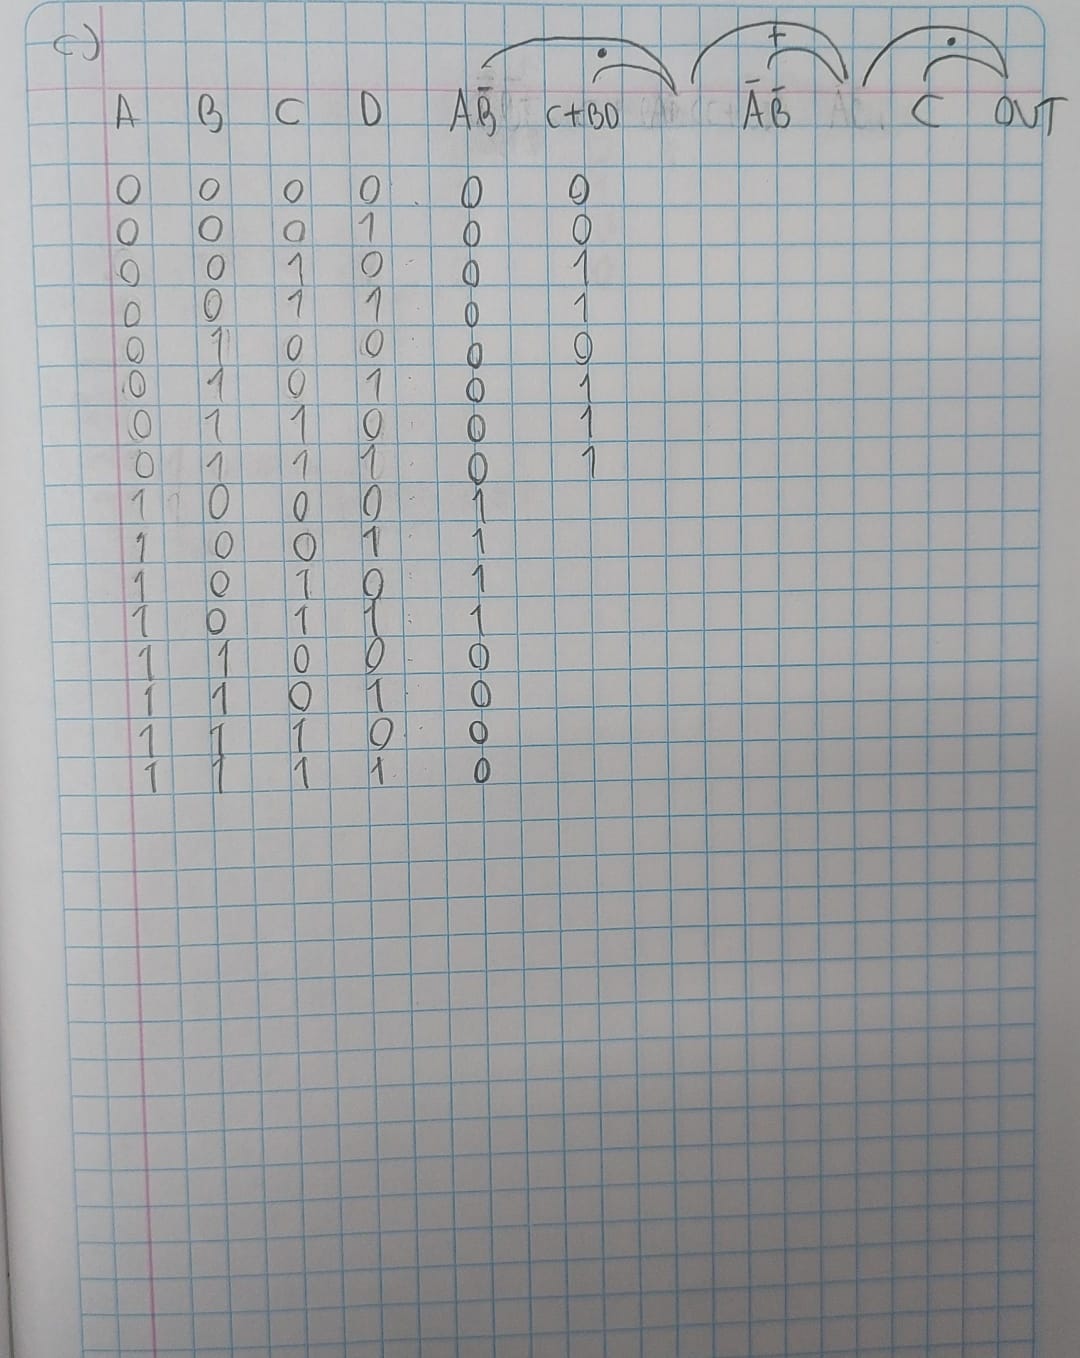 c)
· + ·
A B C D AB̄ C+BD ĀB̄ C OUT
0 0 0 0 0 0
0 0 0 1 0 0
0 0 1 0 0 1
0 0 1 1 0 1
0 1 0 0 0 0
0 1 0 1 0 1
0 1 1 0 0 1
0 1 1 1 0 1
1 0 0 0 1
1 0 0 1 1
1 0 1 0 1
1 0 1 1 1
1 1 0 0 0
1 1 0 1 0
1 1 1 0 0
1 1 1 1 0